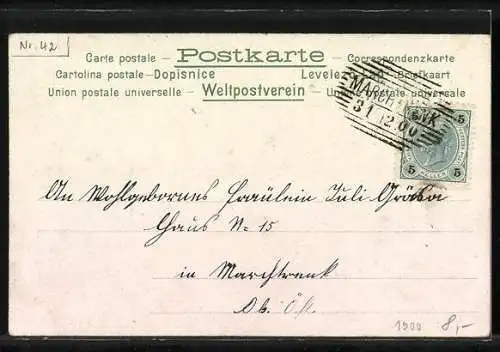 Nr. 42
Carte postale — Postkarte — Correspondenzkarte
Cartolina postale — Dopisnice Levelező-Lap — Briefkaart
Union postale universelle — Weltpostverein — Union postale universelle
MARCHTRENK
31 12.00
5 5
5 HELLER 5
An Wohlgebornes Fräulein Juli Gräsa
Haus No 15
in Marchtrenk
Ob. Öst.
1900 8,-